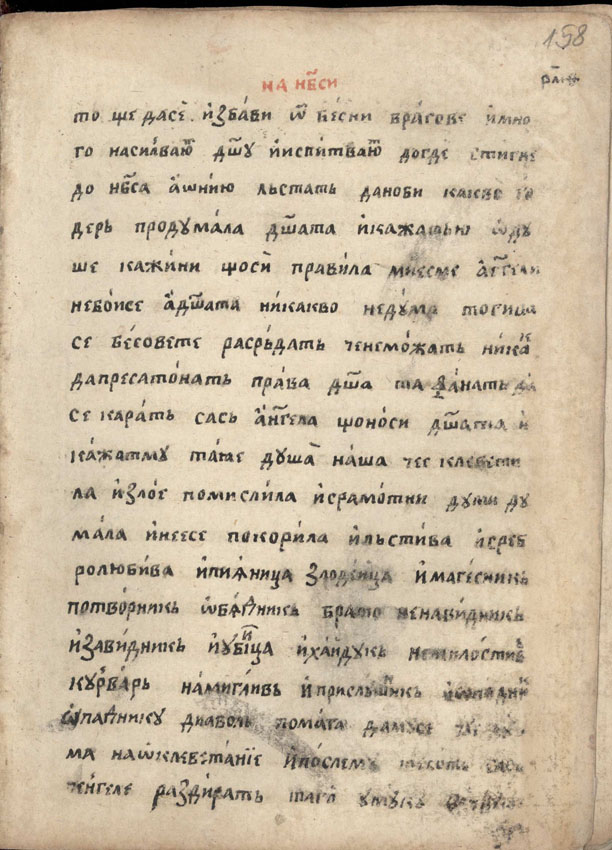 158
на нб҃си
то ще дасе҆ и҆зба́ви ѿ бе́сни вра́гове и҆мно
го насилваю҆ дш҃у и҆испи́тваю҆ догде стигне
до нб҃са а҆ѡ҆нию льстать даноби какво
дерь проду́мала дш҃ата и҆кажатью ѡ҆ду
ше кажи́ни що́си прави́ла миесме а҆гг҃ели
небо́исе а҆дш҃ата ника́кво неду́ма тогива
се бе́совете расръ́дать ченемо́жать ника́к
дапресато́нать пра́ва дш҃а та
се кара́ть сась а҆гг҃ела щоно́си дш҃ата и҆
ка́жатму та́ѧ душа̀ на́ша чес клевети
ла и҆зло́е помисли́ла и҆срамо́тни думи ду
ма́ла и҆неесе покори́ла и҆льсти́ва и҆среб
ролюби́ва и҆пиѧ́ница злоде́ица и҆маге́сникь
потво́рникь ѡ҆ба́ѧникь брато ненави́дникь
и҆зави́дникь и҆уби́ица и҆ха́идукь немилостивь
ку́рварь намигли́вь и҆прислу́шникь
ѡ҆па́дни́ку диаволь пома́га дамусе
ма наѡ҆клевета́нїе и҆по́слемь
те́нгеле раздира́ть таѧ